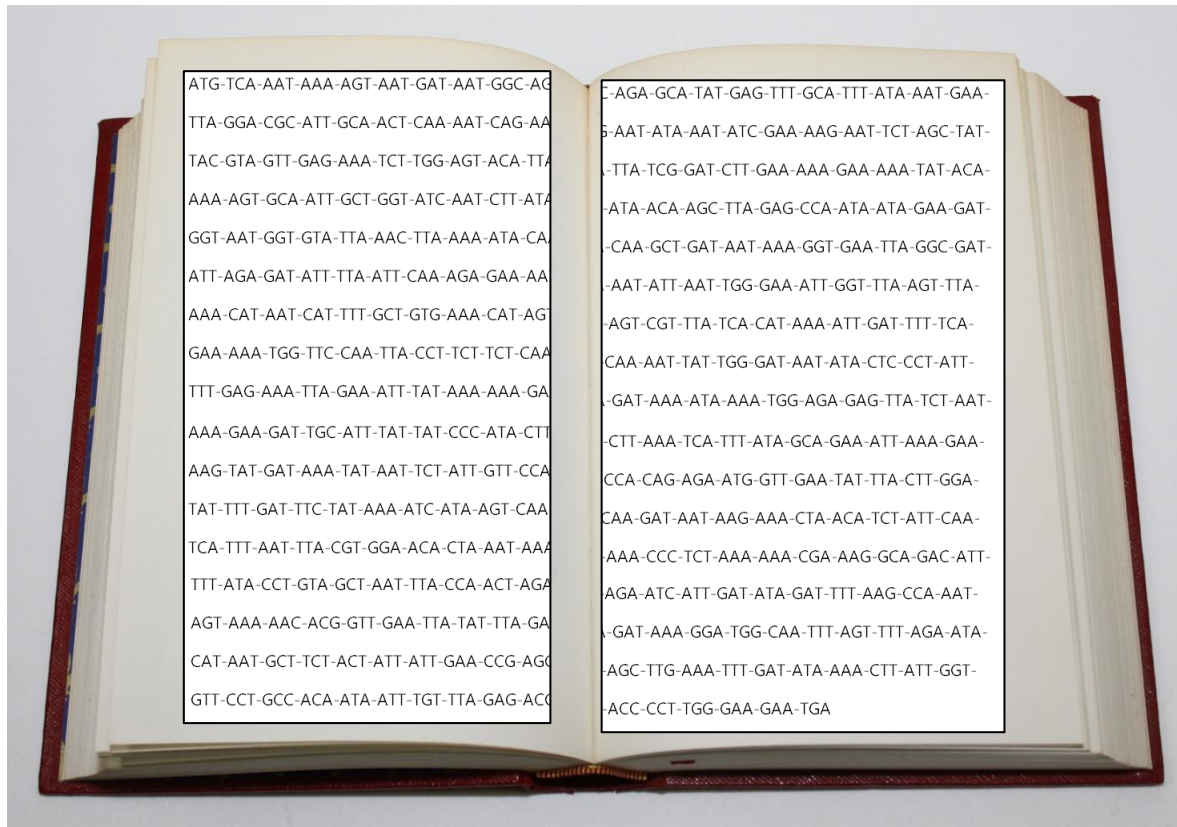 ATG-TCA-AAT-AAA-AGT-AAT-GAT-AAT-GGC-AG
TTA-GGA-CGC-ATT-GCA-ACT-CAA-AAT-CAG-AA
TAC-GTA-GTT-GAG-AAA-TCT-TGG-AGT-ACA-TTA
AAA-AGT-GCA-ATT-GCT-GGT-ATC-AAT-CTT-ATA
GGT-AAT-GGT-GTA-TTA-AAC-TTA-AAA-ATA-CA
ATT-AGA-GAT-ATT-TTA-ATT-CAA-AGA-GAA-AA
AAA-CAT-AAT-CAT-TTT-GCT-GTG-AAA-CAT-AGT
GAA-AAA-TGG-TTC-CAA-TTA-CCT-TCT-TCT-CAA
TTT-GAG-AAA-TTA-GAA-ATT-TAT-AAA-AAA-GA
AAA-GAA-GAT-TGC-ATT-TAT-TAT-CCC-ATA-CTT
AAG-TAT-GAT-AAA-TAT-AAT-TCT-ATT-GTT-CCA
TAT-TTT-GAT-TTC-TAT-AAA-ATC-ATA-AGT-CAA
TCA-TTT-AAT-TTA-CGT-GGA-ACA-CTA-AAT-AAA
TTT-ATA-CCT-GTA-GCT-AAT-TTA-CCA-ACT-AGA
AGT-AAA-AAC-ACG-GTT-GAA-TTA-TAT-TTA-GA
CAT-AAT-GCT-TCT-ACT-ATT-ATT-GAA-CCG-AGC
GTT-CCT-GCC-ACA-ATA-ATT-TGT-TTA-GAG-ACC
C-AGA-GCA-TAT-GAG-TTT-GCA-TTT-ATA-AAT-GAA-
G-AAT-ATA-AAT-ATC-GAA-AAG-AAT-TCT-AGC-TAT-
-TTA-TCG-GAT-CTT-GAA-AAA-GAA-AAA-TAT-ACA-
-ATA-ACA-AGC-TTA-GAG-CCA-ATA-ATA-GAA-GAT-
-CAA-GCT-GAT-AAT-AAA-GGT-GAA-TTA-GGC-GAT-
-AAT-ATT-AAT-TGG-GAA-ATT-GGT-TTA-AGT-TTA-
-AGT-CGT-TTA-TCA-CAT-AAA-ATT-GAT-TTT-TCA-
-CAA-AAT-TAT-TGG-GAT-AAT-ATA-CTC-CCT-ATT-
-GAT-AAA-ATA-AAA-TGG-AGA-GAG-TTA-TCT-AAT-
-CTT-AAA-TCA-TTT-ATA-GCA-GAA-ATT-AAA-GAA-
CCA-CAG-AGA-ATG-GTT-GAA-TAT-TTA-CTT-GGA-
CAA-GAT-AAT-AAG-AAA-CTA-ACA-TCT-ATT-CAA-
-AAA-CCC-TCT-AAA-AAA-CGA-AAG-GCA-GAC-ATT-
-AGA-ATC-ATT-GAT-ATA-GAT-TTT-AAG-CCA-AAT-
-GAT-AAA-GGA-TGG-CAA-TTT-AGT-TTT-AGA-ATA-
-AGC-TTG-AAA-TTT-GAT-ATA-AAA-CTT-ATT-GGT-
-ACC-CCT-TGG-GAA-GAA-TGA